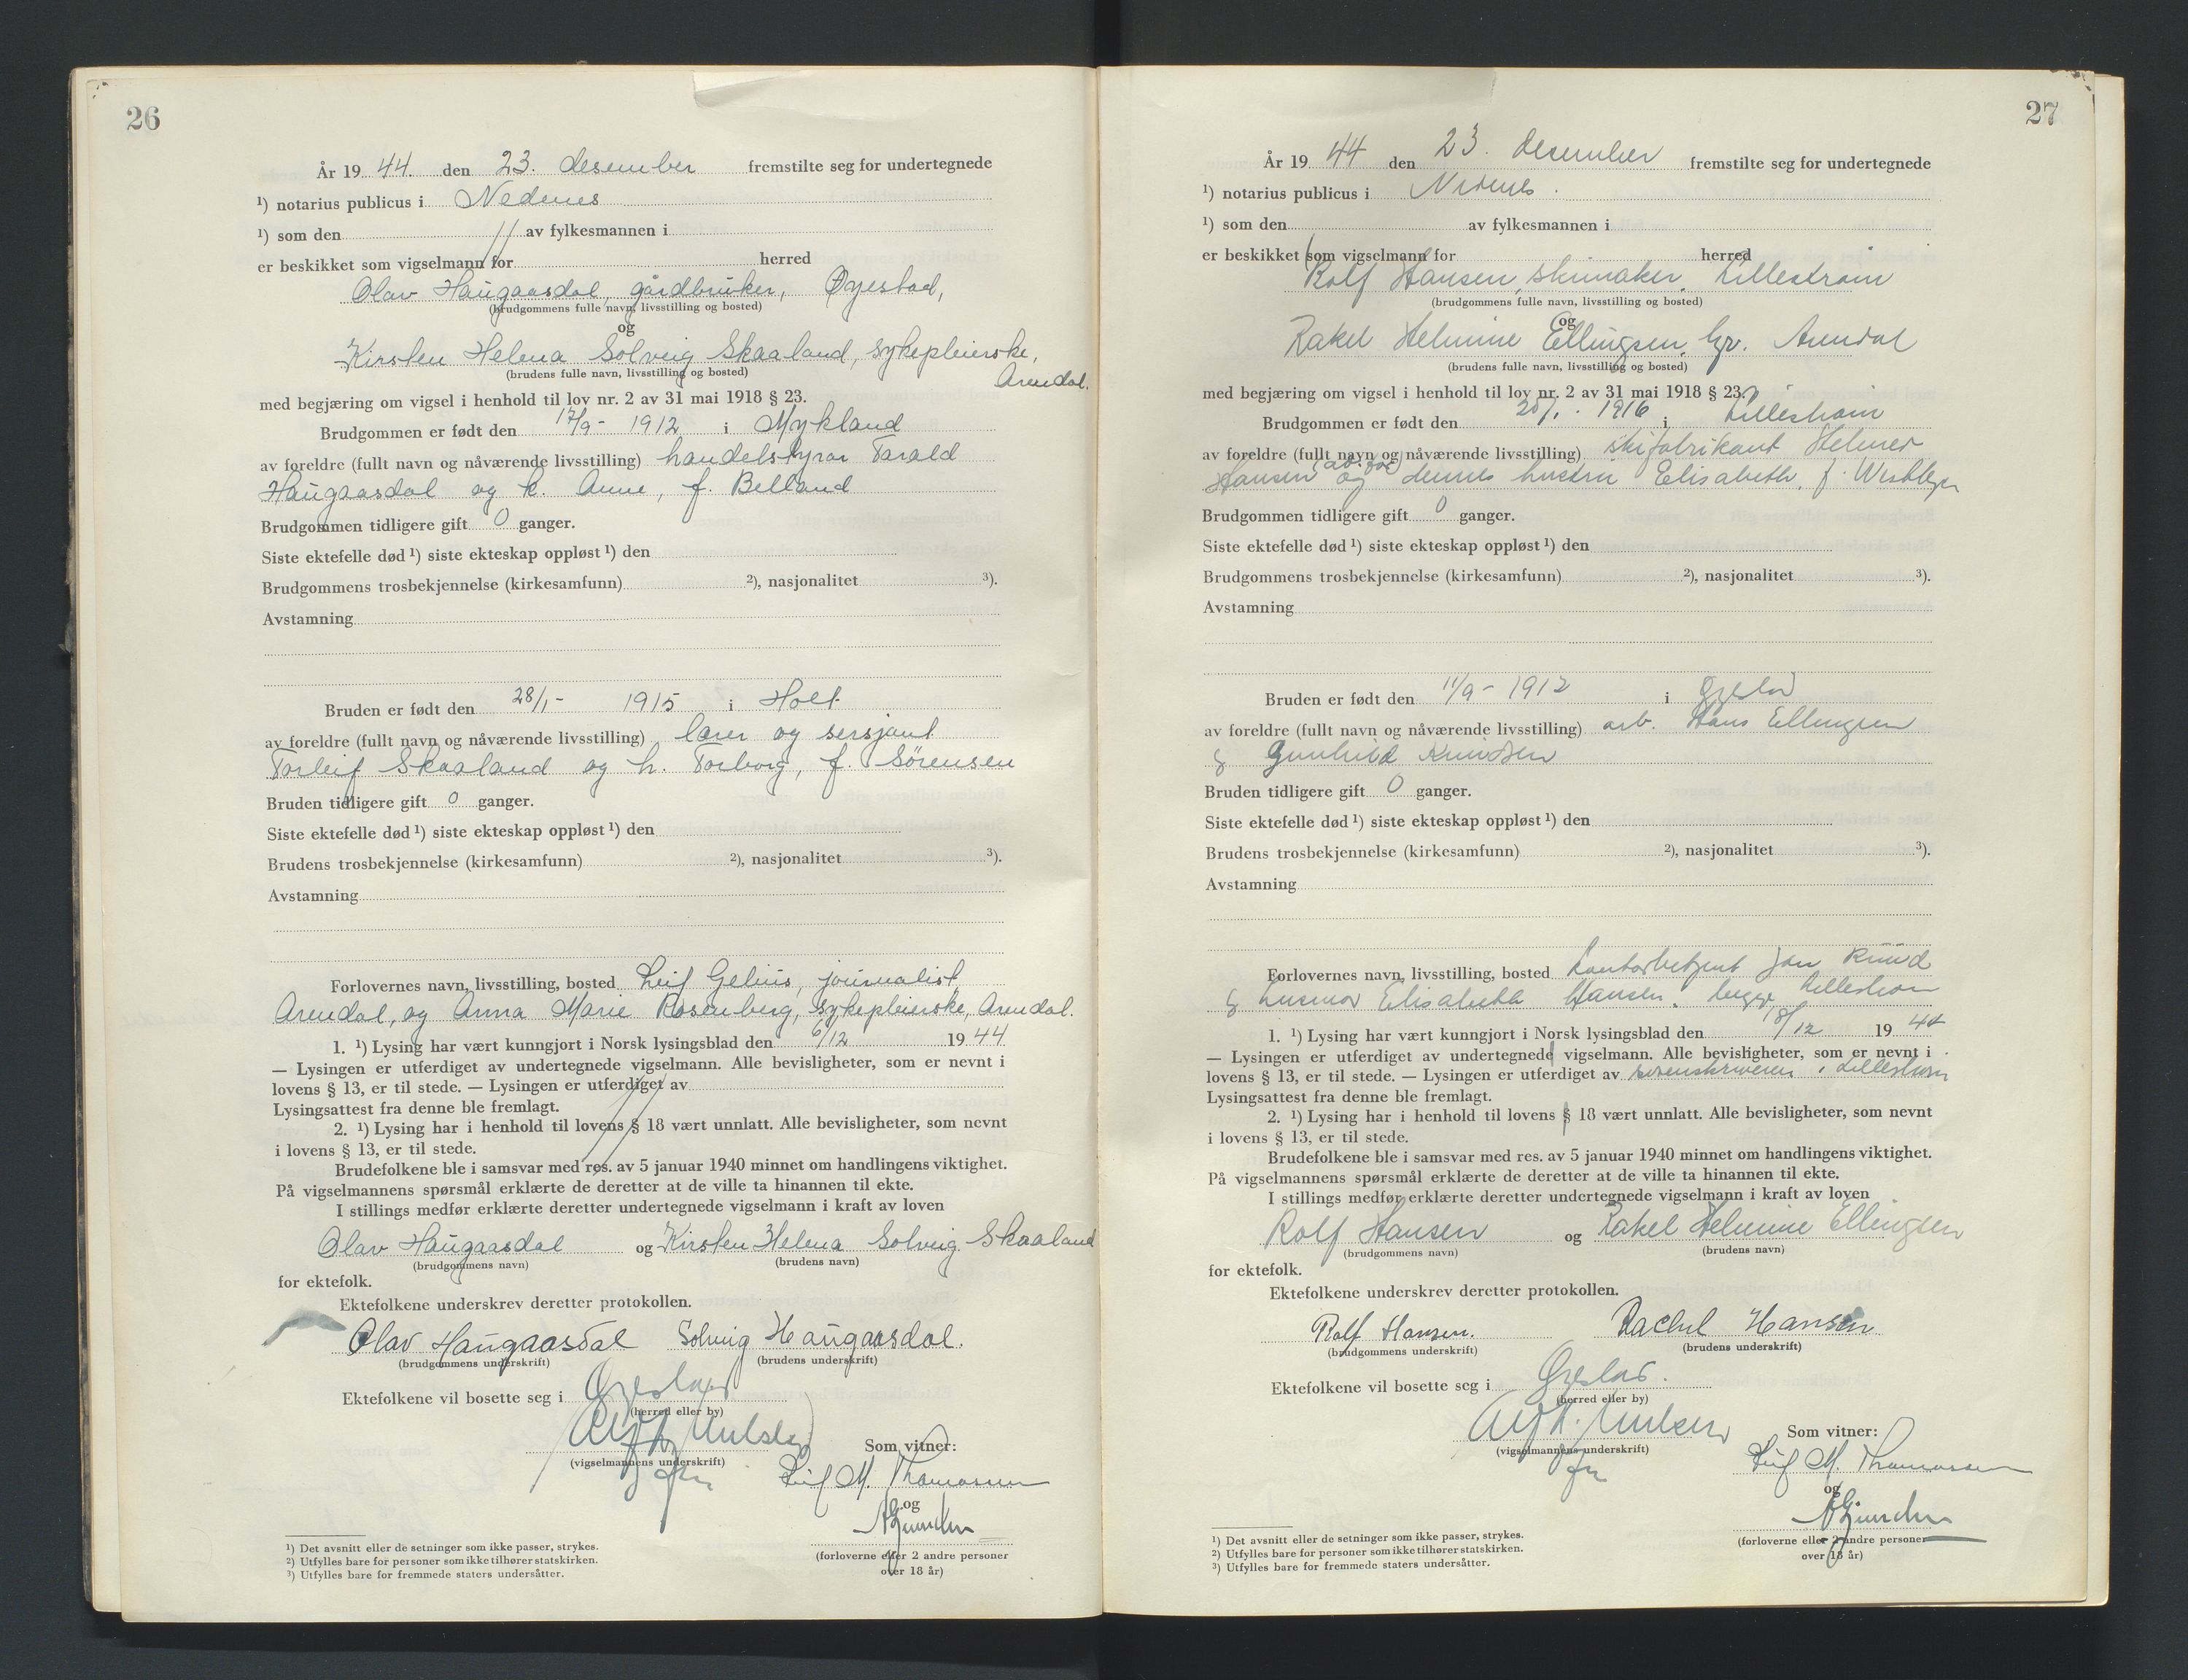 26
År 19 44. den 23. desember fremstilte seg for undertegnede
¹) notarius publicus i Nedenes
¹) som den av fylkesmannen i
er beskikket som vigselmann for herred
Olav Haugaasdal, gårdbruker, Øyestad,
(brudgommens fulle navn, livsstilling og bosted)
og
Kirsten Helena Solveig Skaaland, sykepleierske,
Arendal.
(brudens fulle navn, livsstilling og bosted)
med begjæring om vigsel i henhold til lov nr. 2 av 31 mai 1918 § 23.
Brudgommen er født den 17/9- 1912 i Mykland
av foreldre (fullt navn og nåværende livsstilling) handelstyrar Tarald
Haugaasdal og h. Anne, f. Belland
Brudgommen tidligere gift 0 ganger.
Siste ektefelle død ¹) siste ekteskap oppløst ¹) den
Brudgommens trosbekjennelse (kirkesamfunn) ²), nasjonalitet ³).
Avstamning
Bruden er født den 28/1- 1915 i Holt
av foreldre (fullt navn og nåværende livsstilling) lærer og sersjant
Torleif Skaaland og h. Torborg, f. Sørensen
Bruden tidligere gift 0 ganger.
Siste ektefelle død ¹) siste ekteskap oppløst ¹) den
Brudens trosbekjennelse (kirkesamfunn) ²), nasjonalitet ³).
Avstamning
Forlovernes navn, livsstilling, bosted Leif Gelius, journalist,
Arendal, og Anna Marie Rosenberg, sykepleierske, Arendal.
1. ¹) Lysing har vært kunngjort i Norsk lysingsblad den 6/12 19 44
— Lysingen er utferdiget av undertegnede vigselmann. Alle bevisligheter, som er nevnt i
lovens § 13, er til stede. — Lysingen er utferdiget av
Lysingsattest fra denne ble fremlagt.
2. ¹) Lysing har i henhold til lovens § 18 vært unnlatt. Alle bevisligheter, som nevnt
i lovens § 13, er til stede.
Brudefolkene ble i samsvar med res. av 5 januar 1940 minnet om handlingens viktighet.
På vigselmannens spørsmål erklærte de deretter at de ville ta hinannen til ekte.
I stillings medfør erklærte deretter undertegnede vigselmann i kraft av loven
Olav Haugaasdal og Kirsten Helena Solveig Skaaland
(brudgommens navn) (brudens navn)
for ektefolk.
Ektefolkene underskrev deretter protokollen.
Olav Haugaasdal Solveig Haugaasdal.
(brudgommens underskrift) (brudens underskrift)
Ektefolkene vil bosette seg i Øyestad
(herred eller by)
(vigselmannens underskrift)
Som vitner:
Leif M. Thomassen
og
(forloverne eller 2 andre personer
over 18 år)
¹) Det avsnitt eller de setninger som ikke passer, strykes.
²) Utfylles bare for personer som ikke tilhører statskirken.
³) Utfylles bare for fremmede staters undersåtter.
27
År 19 44 den 23. desember fremstilte seg for undertegnede
¹) notarius publicus i Nedenes.
¹) som den av fylkesmannen i
er beskikket som vigselmann for herred
Rolf Hansen, skimaker, Lillestrøm
(brudgommens fulle navn, livsstilling og bosted)
og
Rakel Helmine Ellingsen, Arendal
(brudens fulle navn, livsstilling og bosted)
med begjæring om vigsel i henhold til lov nr. 2 av 31 mai 1918 § 23.
Brudgommen er født den 1916 i Lillestrøm
av foreldre (fullt navn og nåværende livsstilling) skifabrikant Helmer
Hansen og dennes hustru Elisabeth, f.
Brudgommen tidligere gift 0 ganger.
Siste ektefelle død ¹) siste ekteskap oppløst ¹) den
Brudgommens trosbekjennelse (kirkesamfunn) ²), nasjonalitet ³).
Avstamning
Bruden er født den 11/9- 1912 i Øyestad
av foreldre (fullt navn og nåværende livsstilling) arb. Hans Ellingsen
& Gunhild Knudsen
Bruden tidligere gift 0 ganger.
Siste ektefelle død ¹) siste ekteskap oppløst ¹) den
Brudens trosbekjennelse (kirkesamfunn) ²), nasjonalitet ³).
Avstamning
Forlovernes navn, livsstilling, bosted kontorbetjent Jan Ruud
& Elisabeth Hansen, begge Lillestrøm
1. ¹) Lysing har vært kunngjort i Norsk lysingsblad den 18/12 19 44
— Lysingen er utferdiget av undertegnede vigselmann. Alle bevisligheter, som er nevnt i
lovens § 13, er til stede. — Lysingen er utferdiget av sorenskriveren i Lillestrøm
Lysingsattest fra denne ble fremlagt.
2. ¹) Lysing har i henhold til lovens § 18 vært unnlatt. Alle bevisligheter, som nevnt
i lovens § 13, er til stede.
Brudefolkene ble i samsvar med res. av 5 januar 1940 minnet om handlingens viktighet.
På vigselmannens spørsmål erklærte de deretter at de ville ta hinannen til ekte.
I stillings medfør erklærte deretter undertegnede vigselmann i kraft av loven
Rolf Hansen og Rakel Helmine Ellingsen
(brudgommens navn) (brudens navn)
for ektefolk.
Ektefolkene underskrev deretter protokollen.
Rolf Hansen. Rachel Hansen
(brudgommens underskrift) (brudens underskrift)
Ektefolkene vil bosette seg i Øyestad.
(herred eller by)
(vigselmannens underskrift)
Som vitner:
Leif M. Thomassen
og
(forloverne eller 2 andre personer
over 18 år)
¹) Det avsnitt eller de setninger som ikke passer, strykes.
²) Utfylles bare for personer som ikke tilhører statskirken.
³) Utfylles bare for fremmede staters undersåtter.